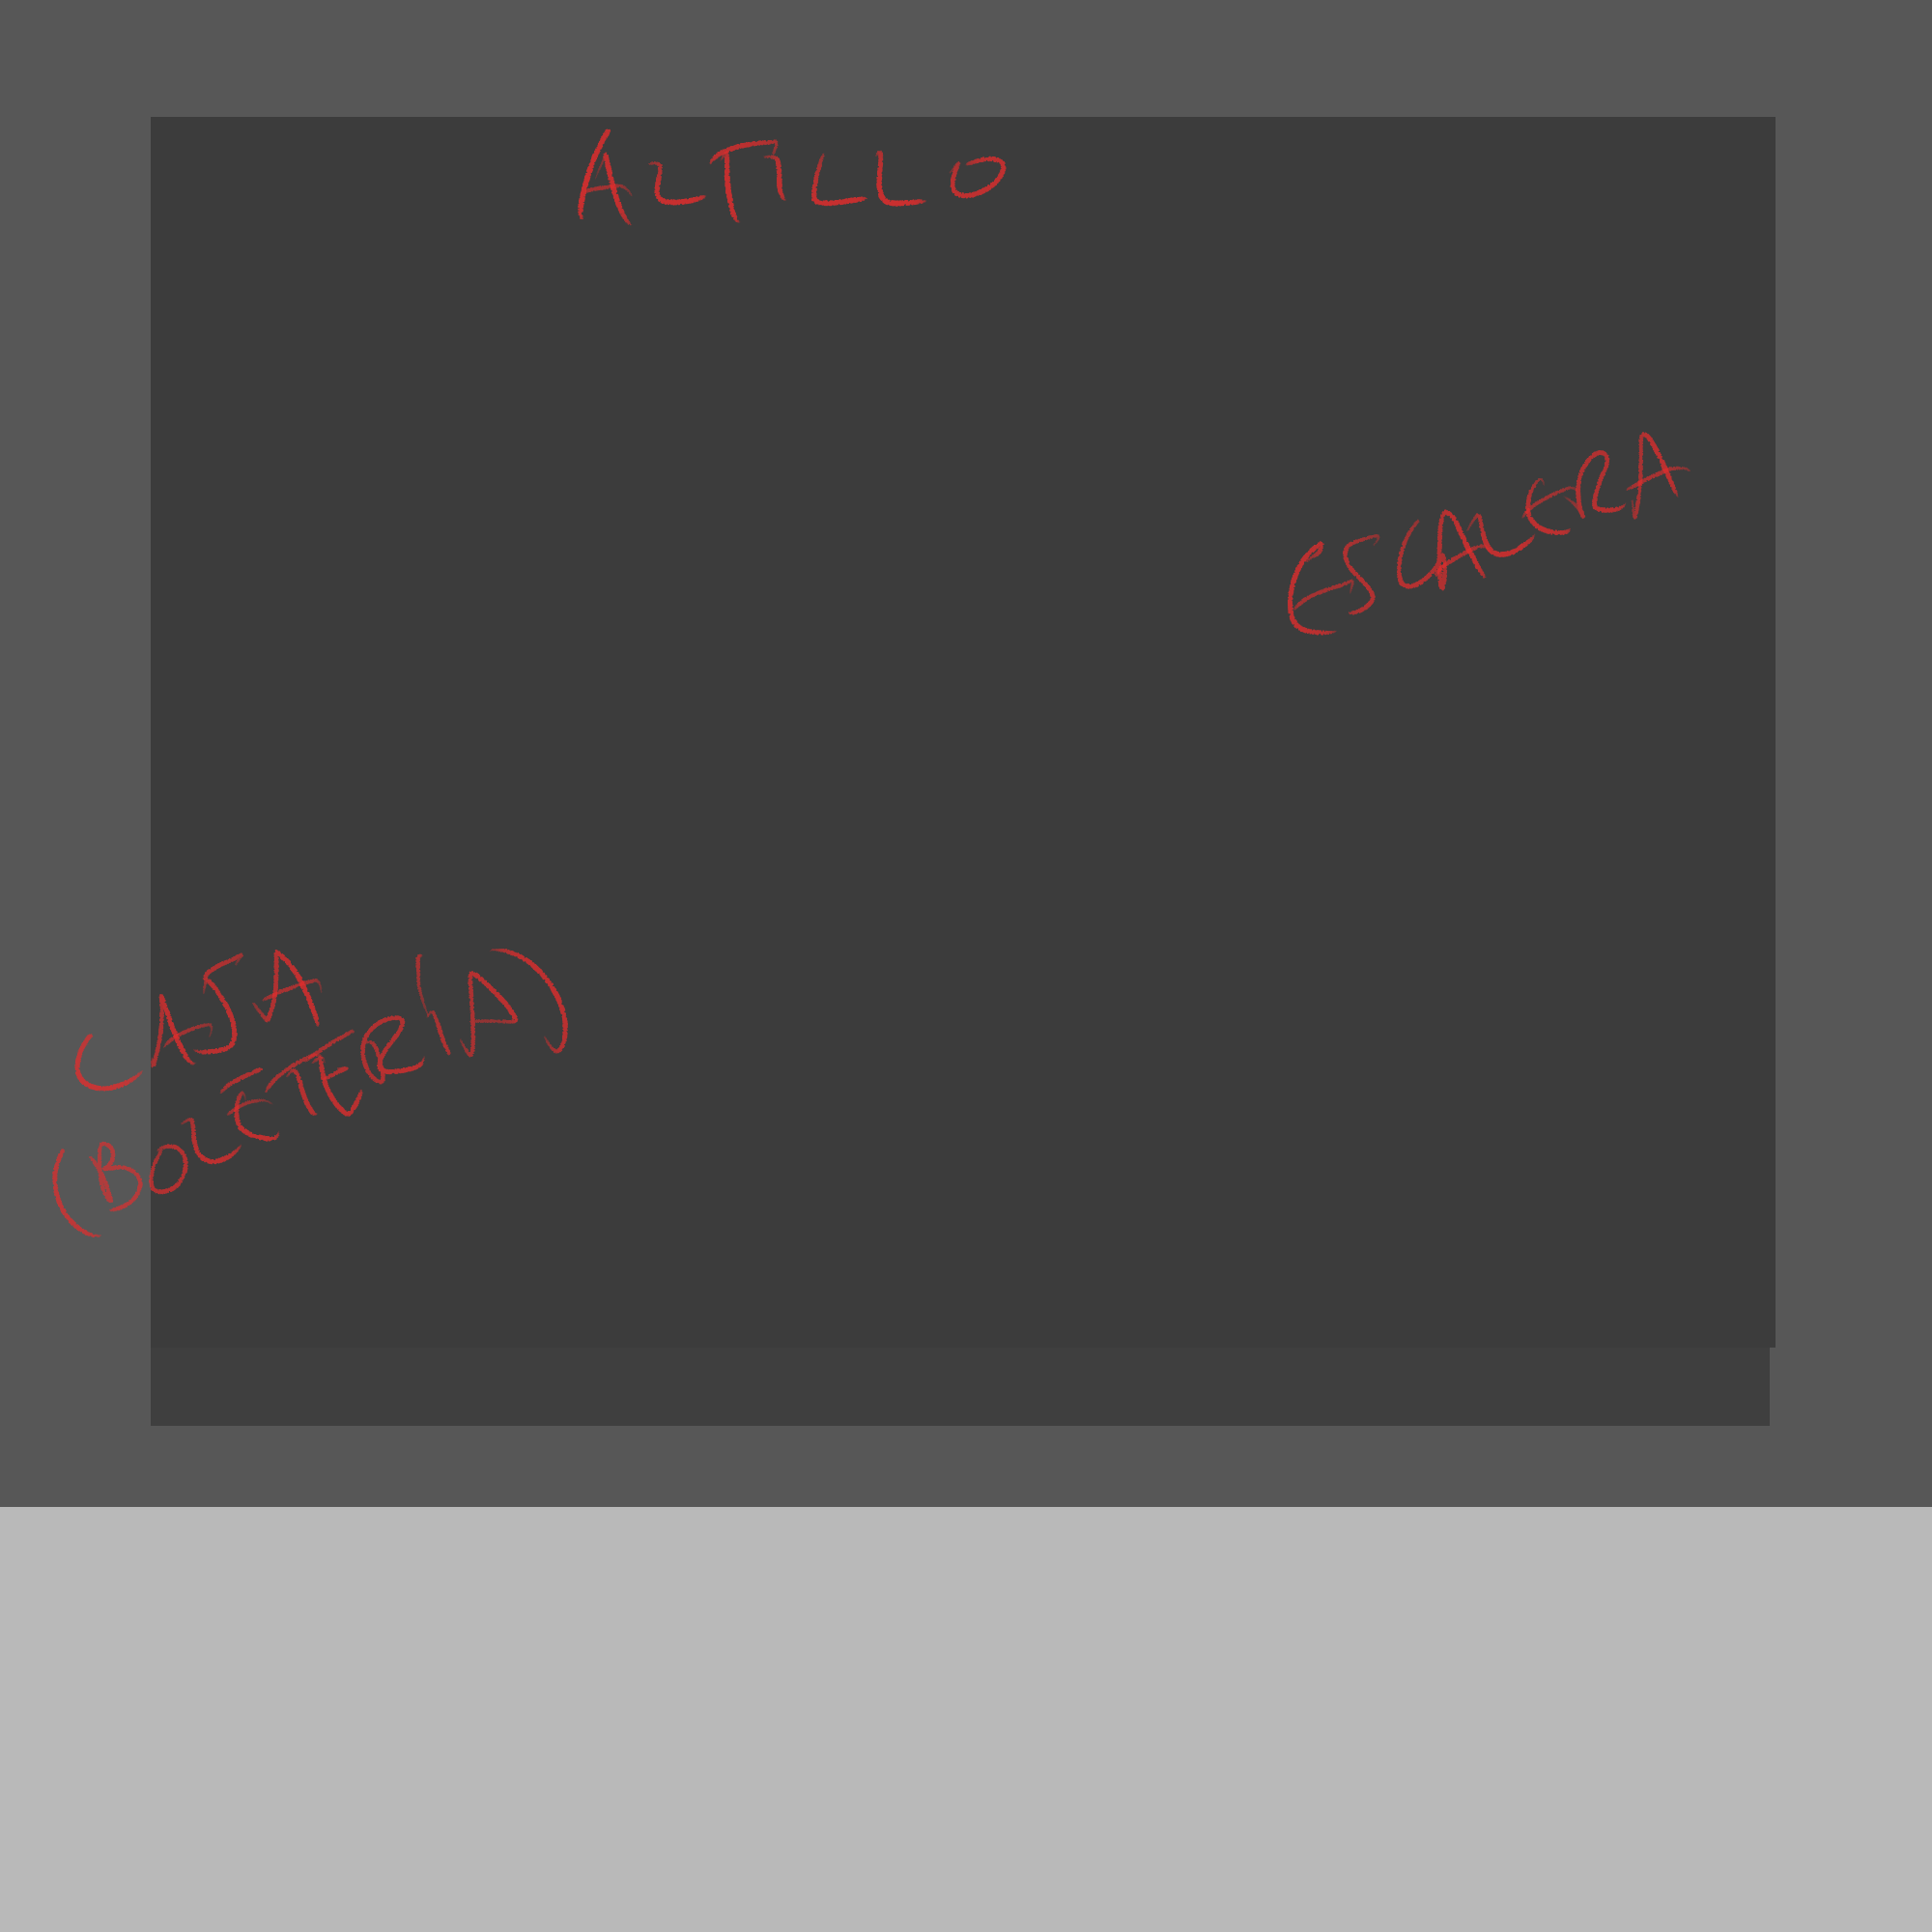 ALTILLO
ESCALERA
CASA
(BOLETERIA)